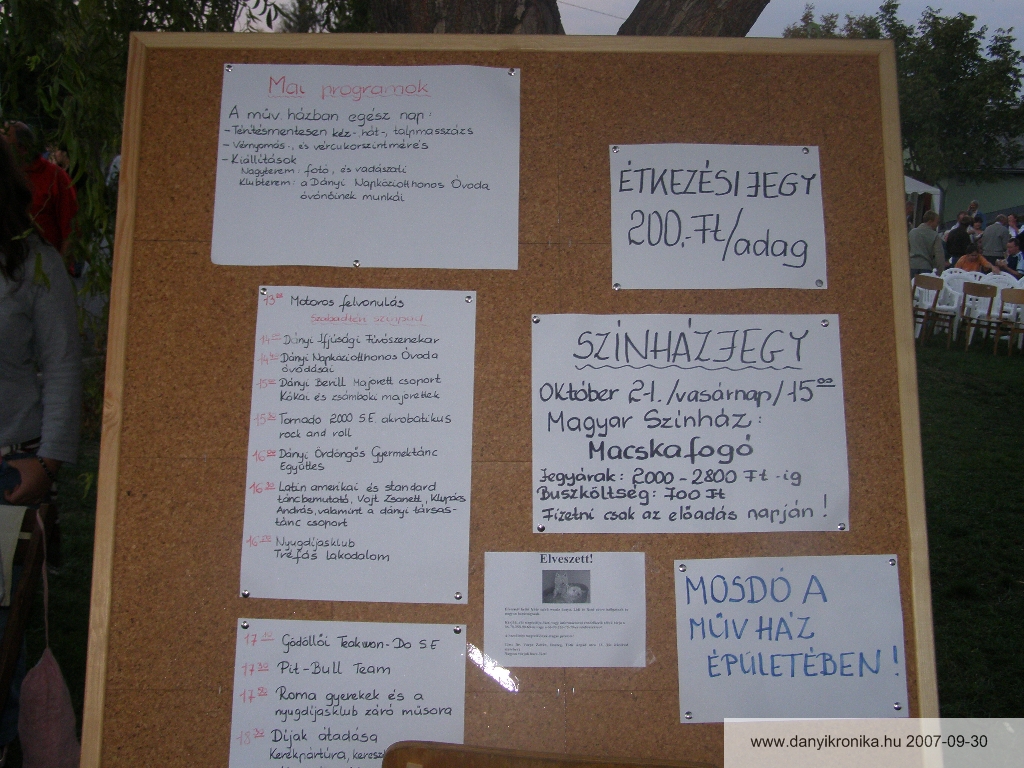 Mai programok
A műv. házban egész nap:
- Térítésmentesen kéz-, hát-, talpmasszázs
- Vérnyomás-, és vércukorszintmérés
- Kiállítások
Nagyterem: fotó, és vadászati
Klubterem: a Dányi Napköziotthonos Óvoda
óvónőinek munkái
ÉTKEZÉSI JEGY
200.-Ft/adag
13⁰⁰ Motoros felvonulás
Szabadtéri színpad
Dányi Ifjúsági Fúvószenekar
Dányi Napköziotthonos Óvoda
óvodásai
Dányi Berill Majorett csoport
Kókai és zsámboki majorettek
Tornado 2000 S.E. akrobatikus
rock and roll
Dányi Ördöngös Gyermektánc
Együttes
Latin amerikai és standard
táncbemutató, Vojt Zsanett, Klupács
András, valamint a dányi társas-
tánc csoport
Nyugdíjasklub
Tréfás lakodalom
SZÍNHÁZJEGY
Október 21. /vasárnap/ 15⁰⁰
Magyar Színház:
Macskafogó
Jegyárak: 2000 - 2800 Ft -ig
Buszköltség: 700 Ft
Fizetni csak az előadás napján!
Elveszett!
MOSDÓ A
MŰV HÁZ
ÉPÜLETÉBEN!
Gödöllői Teakwon-Do S.E
Pit-Bull Team
Roma gyerekek és a
nyugdíjasklub záró műsora
Díjak átadása
Kerékpártúra,
www.danyikronika.hu 2007-09-30